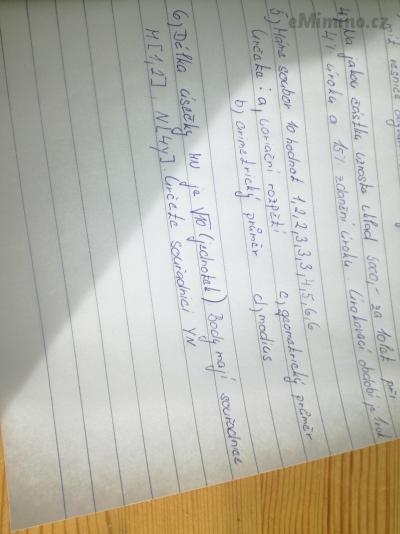 eMimino.cz
4) Na jakou částku vzroste vklad 5000,- za 10 let při
4% úroku a 15% zdanění úroku. Úrokovací období je 1 rok
5) Máme soubor 10 hodnot 1,2,2,3,3,3,4,5,6,6
Určete: a) variační rozpětí c) geometrický průměr
b) aritmetrický průměr d) modus
6) Délka úsečky MN je √10 (jednotek) Body mají souřadnice
M[1,2], N[4,y]. Určete souřadnici yN